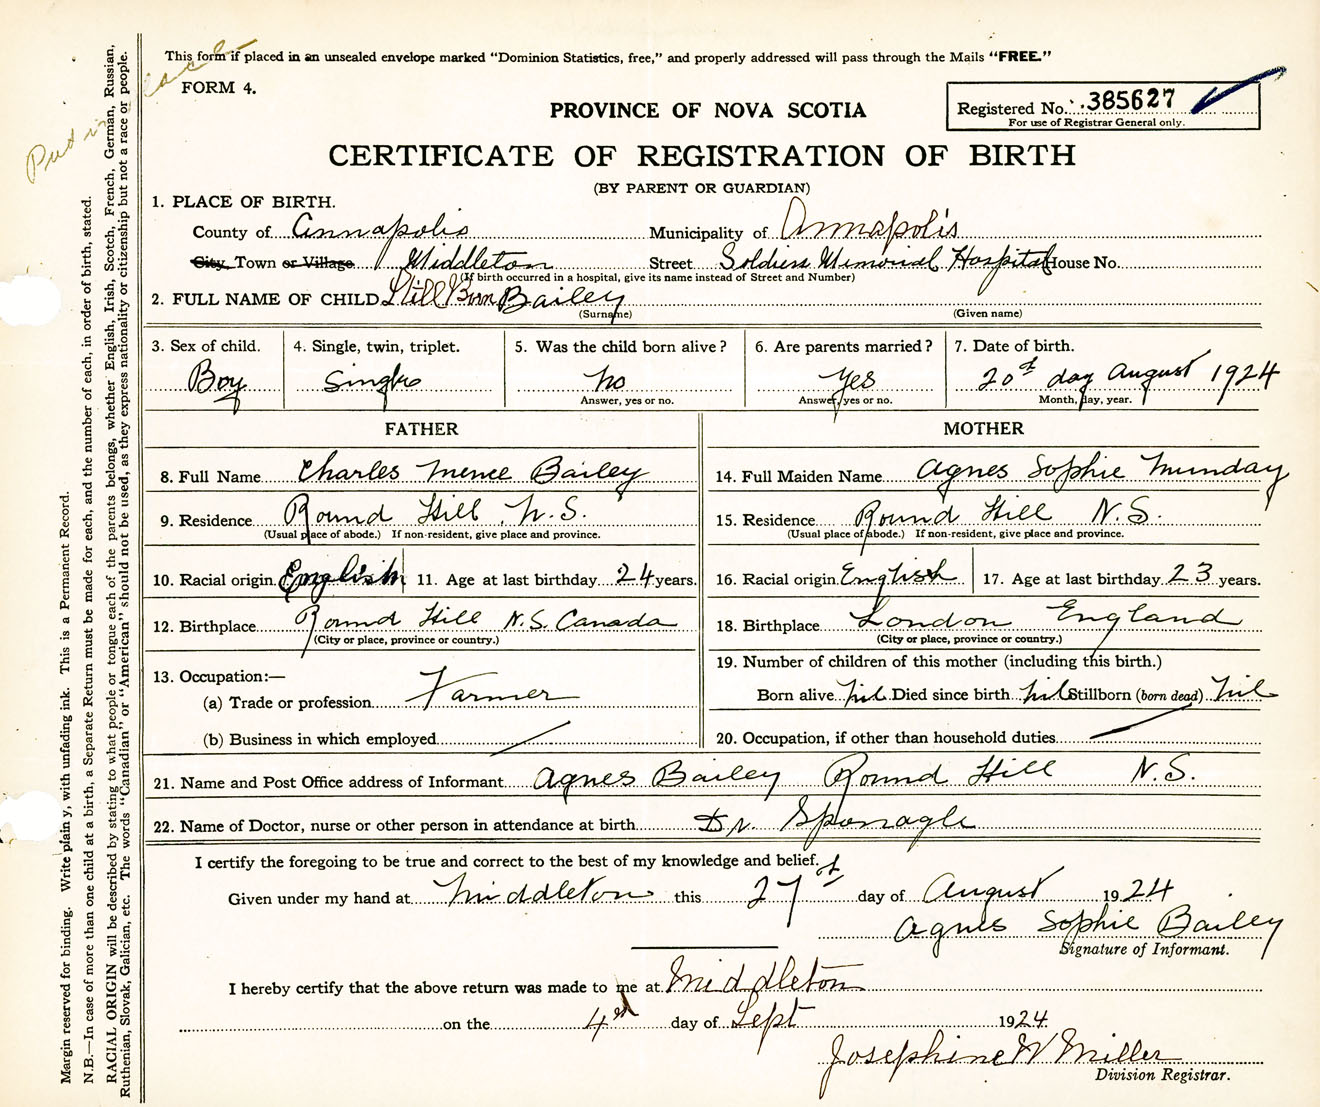 This form if placed in an unsealed envelope marked "Dominion Statistics, free," and properly addressed will pass through the Mails "FREE."
FORM 4.
PROVINCE OF NOVA SCOTIA
Registered No. 385627
For use of Registrar General only.
CERTIFICATE OF REGISTRATION OF BIRTH
(BY PARENT OR GUARDIAN)
1. PLACE OF BIRTH.
County of Annapolis Municipality of Annapolis
City, Town or Village Middleton Street Soldiers Memorial Hospital House No.
(If birth occurred in a hospital, give its name instead of Street and Number)
2. FULL NAME OF CHILD Still Born Bailey
(Surname) (Given name)
3. Sex of child. 4. Single, twin, triplet. 5. Was the child born alive? 6. Are parents married? 7. Date of birth.
Boy Single no Yes 20th day August 1924
Answer, yes or no. Answer, yes or no. Month, day, year.
FATHER MOTHER
8. Full Name Charles Mence Bailey 14. Full Maiden Name Agnes Sophie Munday
9. Residence Round Hill N.S. 15. Residence Round Hill N.S.
(Usual place of abode.) If non-resident, give place and province. (Usual place of abode.) If non-resident, give place and province.
10. Racial origin English 11. Age at last birthday 24 years. 16. Racial origin English 17. Age at last birthday 23 years.
12. Birthplace Round Hill N.S. Canada 18. Birthplace London England
(City or place, province or country.) (City or place, province or country.)
13. Occupation:— 19. Number of children of this mother (including this birth.)
(a) Trade or profession Farmer Born alive nil Died since birth nil Stillborn (born dead) nil
(b) Business in which employed 20. Occupation, if other than household duties
21. Name and Post Office address of Informant Agnes Bailey Round Hill N.S.
22. Name of Doctor, nurse or other person in attendance at birth Dr. Sponagle
I certify the foregoing to be true and correct to the best of my knowledge and belief.
Given under my hand at Middleton this 27th day of August 1924
Agnes Sophie Bailey
Signature of Informant.
I hereby certify that the above return was made to me at Middleton
on the 4th day of Sept 1924.
Josephine W Miller
Division Registrar.
Margin reserved for binding. Write plain y, with unfading ink. This is a Permanent Record.
N.B.—In case of more than one child at a birth, a Separate Return must be made for each, and the number of each, in order of birth, stated.
RACIAL ORIGIN will be described by stating to what people or tongue each of the parents belongs, whether English, Irish, Scotch, French, German, Russian,
Ruthenian, Slovak, Galician, etc. The words "Canadian" or "American" should not be used, as they express nationality or citizenship but not a race or people.
Put in